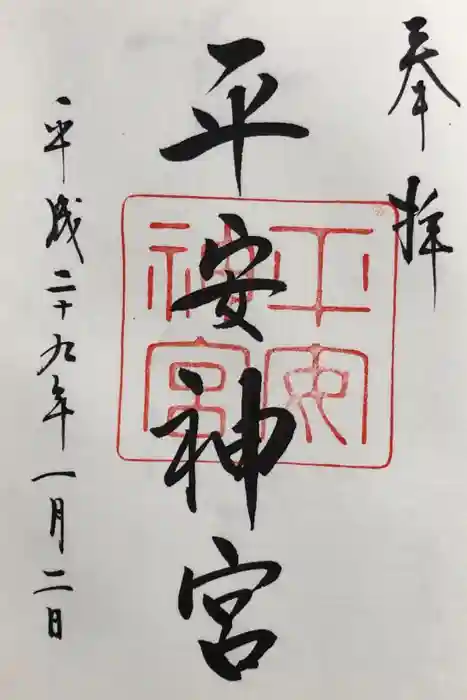 奉拝
平安神宮
平安神宮
平成二十九年一月二日